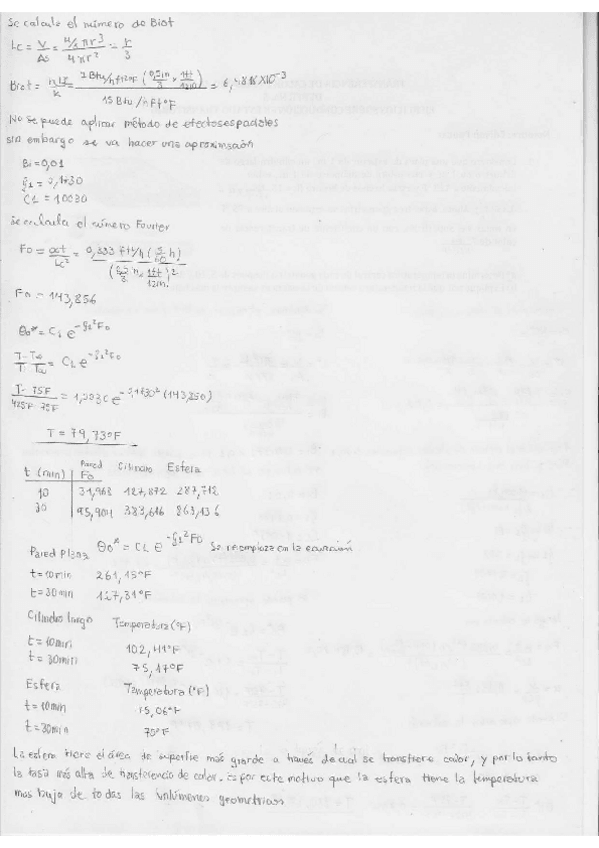 Se calcula el número de Biot
Lc = V/As = 4/3 πr³ / 4πr² = r/3
Biot = hLc/k = 2 Btu/hft²ºF (0,5in/3 × 1ft/12in) / 15 Btu/hft ºF = ×10⁻³
No se puede aplicar método de efectos espaciales
sin embargo se va hacer una aproximación
Bi = 0,01
ξ1 = 0,1730
C1 = 1,0030
Se calcula el número Fourier
Fo = αt/Lc² = 0,333 ft²/h (5/60 h)
Fo = 143,856
θo* = C1 e^-ξ1²Fo
T-T∞ / Ti-T∞ = C1 e^-ξ1²Fo
T-75ºF / 425ºF-75ºF = 1,0030 e^-0,1730² (143,856)
T = 79,330ºF
t (min) Pared Fo Cilindro Esfera
10 31,968 127,872 287,712
30 95,904 383,616 863,136
Pared Plana θo* = C1 e^-ξ1²Fo Se reemplaza en la ecuación
t=10min 261,15ºF
t=30min 127,31ºF
Cilindro largo Temperatura (ºF)
t=10min 102,41ºF
t=30min 75,17ºF
Esfera Temperatura (ºF)
t=10min 75,06ºF
t=30min 75ºF
La esfera tiene el área de superfie más grande a través de cual se transfiere calor, y por lo tanto
la tasa más alta de transferencia de calor. Es por este motivo que la esfera tiene la temperatura
mas baja de todas las volúmenes geometrias